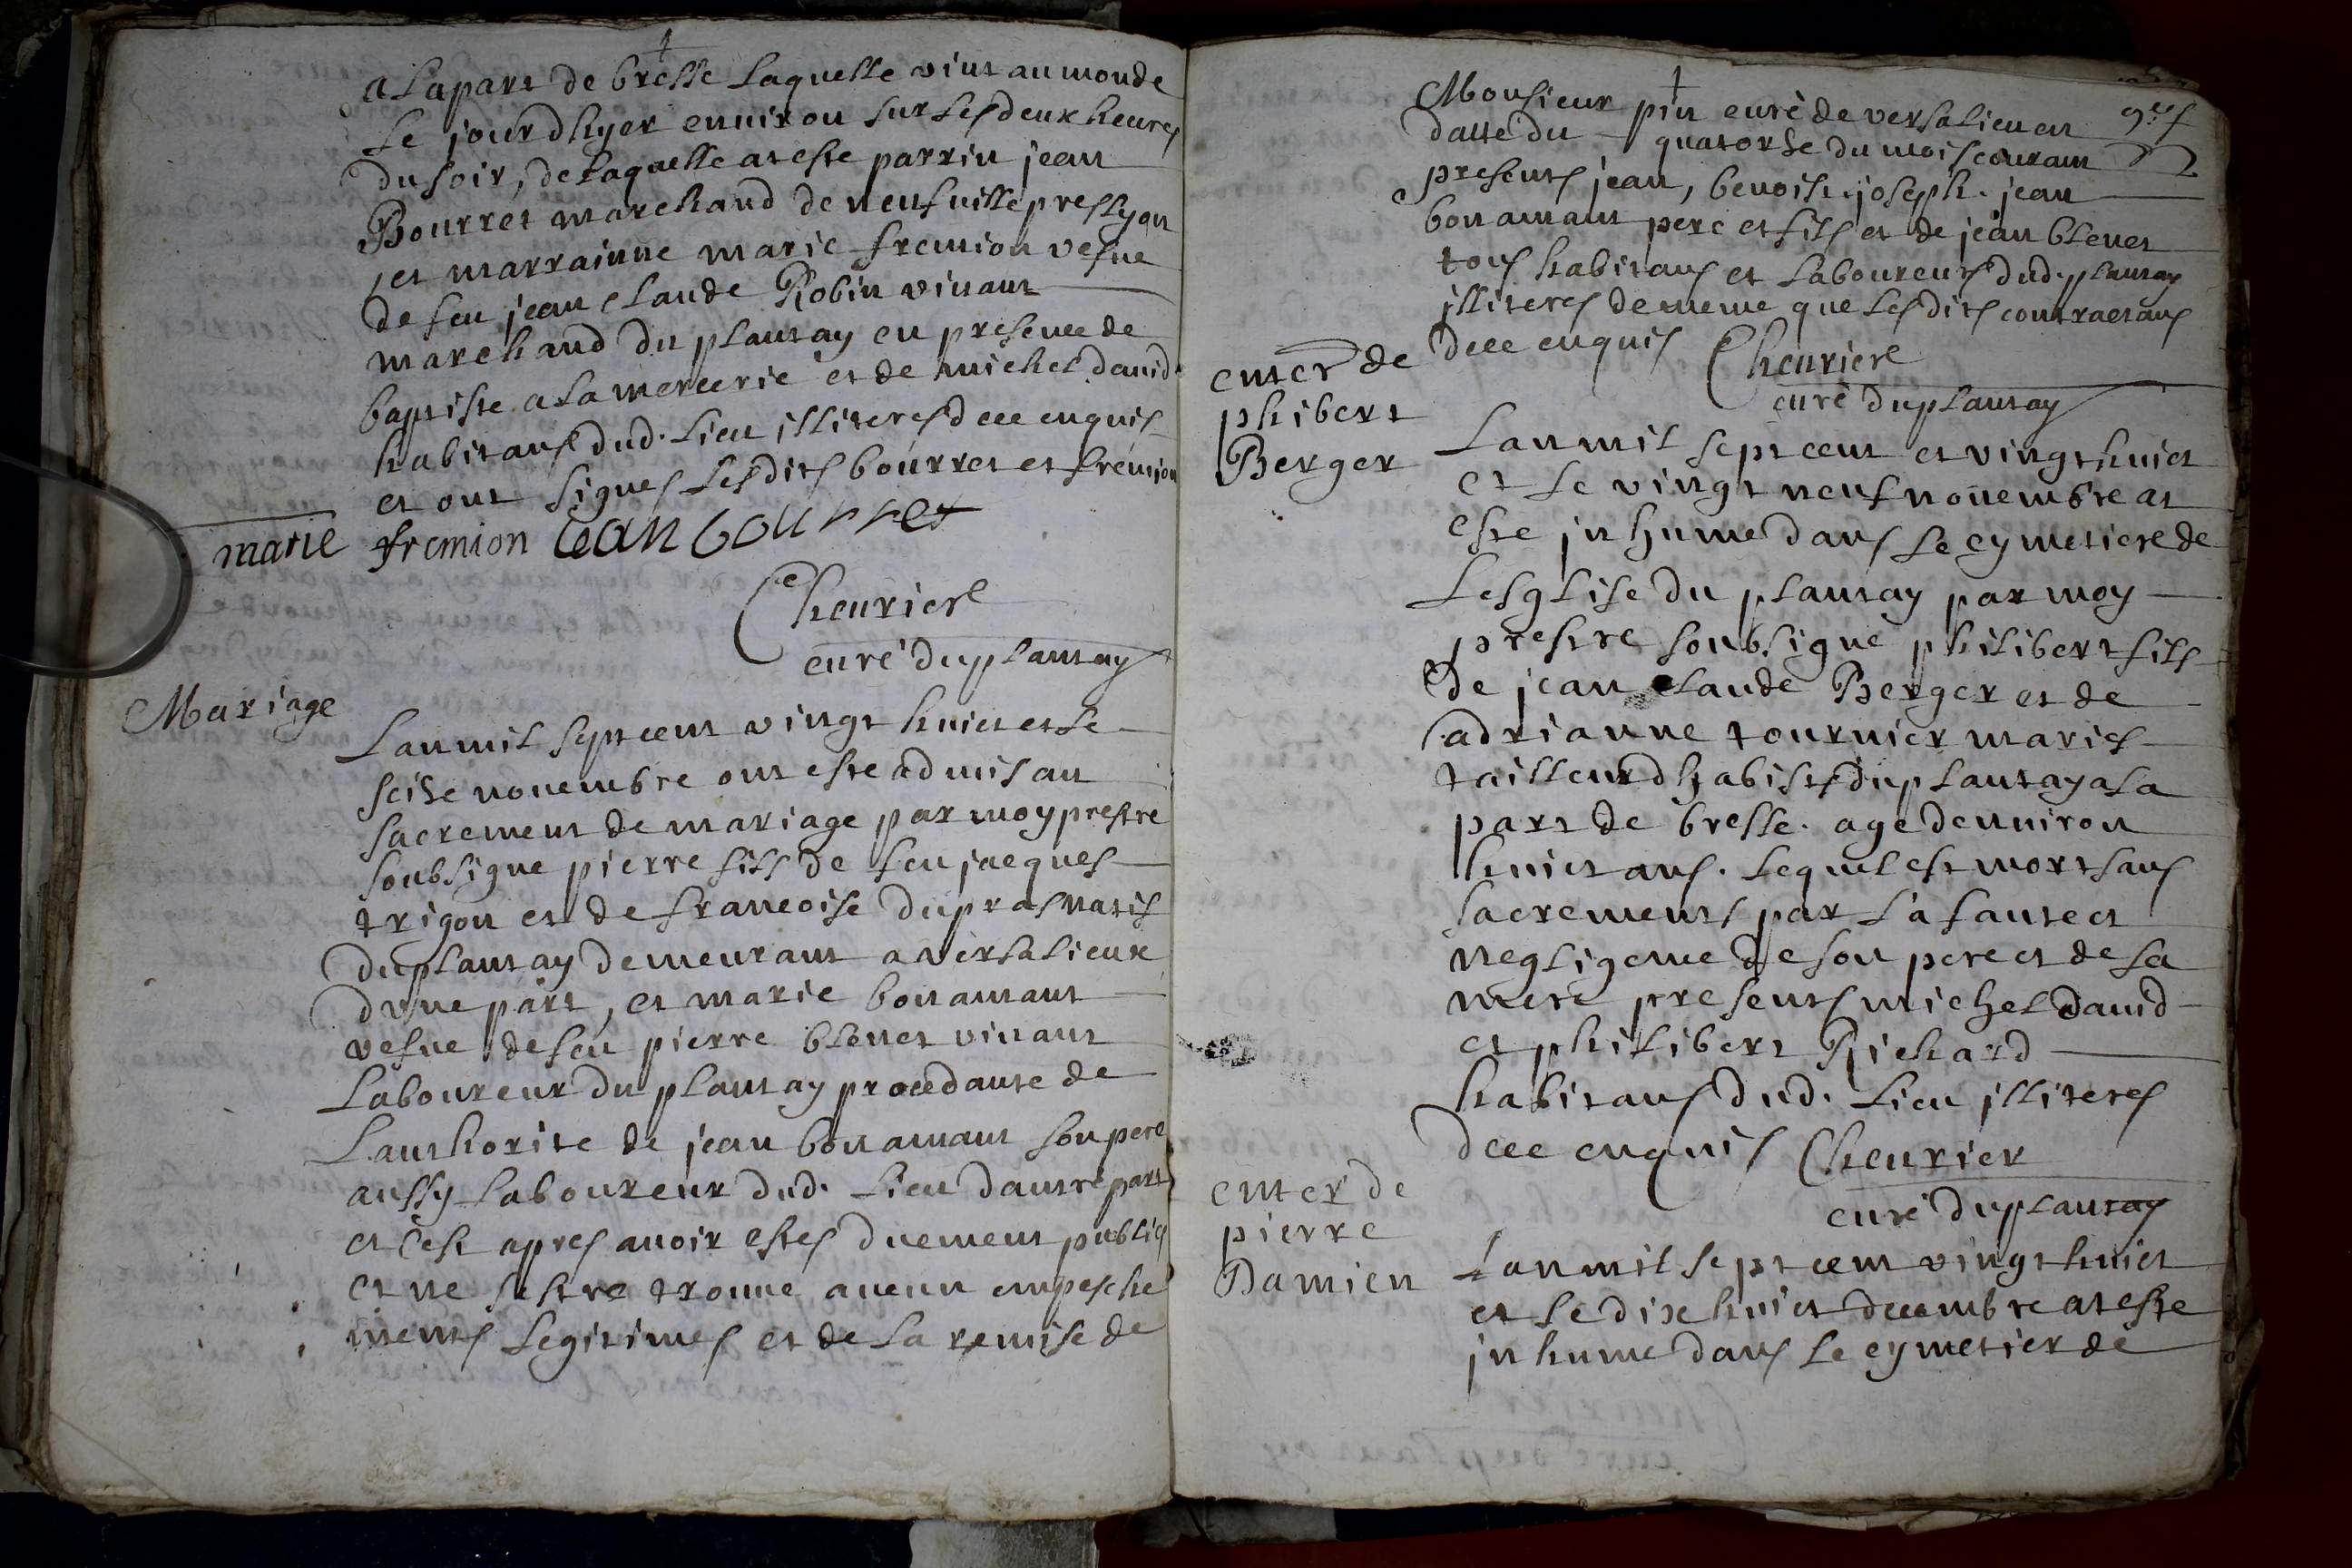 a la part de bresse laquelle vint au monde
le jour dhyer enuiron sur les deux heures
du soir, de laquelle at este parrin jean
Bourret marchand de neufuille pres lyon
et marrainne marie fremion vefue
de feu jean claude Robin viuant
marchand du plantay en presence de
baptiste a la mercerie et de michel dauid
habitans dud. lieu illiteres de ce enquis
et ont signes lesdits bourret et fremion
marie fremion Jean bourret
Cheuriere
curé du plantay
Mariage
Lan mil sept cent vingt huict et le
seise nouembre ont este admis au
sacrement de mariage par moy prestre
soubsigne pierre fils de feu jacques
trigon et de francoise dupras natif
du plantay demeurant a versalieux
dvne part, et marie bonamant
vefue de feu pierre blenet viuant
laboureur du plantay procedante de
lauthorite de jean bonamant son pere
aussy laboureur dud. lieu dautre part
et cest apres auoir estes duement publies
et ne sestre trouue aucun empesche
ments legitimes et de la remise de
Monsieur pin curé de versalieu en
datte du quatorse du mois courant
presents jean, benoist. joseph. jean
bonamant pere et fils et de jean blenet
tous habitans et laboureurs dud. plantay
illiteres de meme que lesdits contractans
de ce enquis Cheuriere
curé du plantay
enter de
phibert
Berger
Lan mil sept cent et vingt huict
et le vingt neuf nouembre at
este jnhume dans le cymetiere de
lesglise du plantay par moy
prestre soubsigne philibert fils
de jean claude Berger et de
adrianne tournier maries
tailleur dhabist du plantay a la
part de bresse. age denuiron
huict ans. lequel est mort sans
sacrements par la faute et
negligence de son pere et de sa
mere presents michel dauid
et philibert Richard
habitans dud. lieu illiteres
de ce enquis Cheurier
curé du plantay
enter de
pierre
Damien
Lan mil sept cent vingt huict
et le dix huict decembre at este
jnhume dans le cymetier de